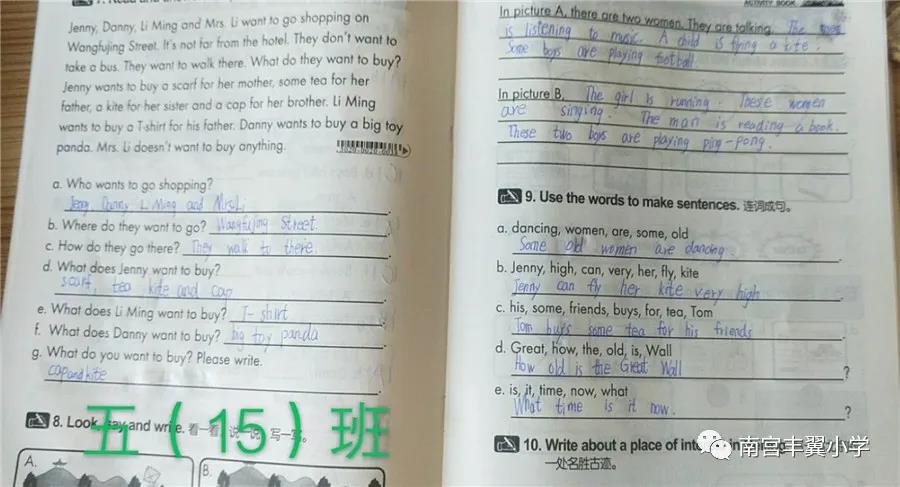 Jenny, Danny, Li Ming and Mrs. Li want to go shopping on
Wangfujing Street. It's not far from the hotel. They don't want to
take a bus. They want to walk there. What do they want to buy?
Jenny wants to buy a scarf for her mother, some tea for her
father, a kite for her sister and a cap for her brother. Li Ming
wants to buy a T-shirt for his father. Danny wants to buy a big toy
panda. Mrs. Li doesn't want to buy anything.
a. Who wants to go shopping?
Jeny Danny Li Ming and Mrs Li.
b. Where do they want to go? Wangfujing Street.
c. How do they go there? They walk to there.
d. What does Jenny want to buy?
scarf, tea kite and cap.
e. What does Li Ming want to buy? T-shirt.
f. What does Danny want to buy? big toy panda.
g. What do you want to buy? Please write.
cap and kite.
8. Look, say and write. 看一看，说一说，写一写。
A.
B.
五（15）班
ACTIVITY BOOK
In picture A, there are two women. They are talking. The
is listening to music. A child is flying a kite.
Some boys are playing football.
In picture B, The girl is running. These women
are singing. The man is reading a book.
These two boys are playing ping-pong.
9. Use the words to make sentences. 连词成句。
a. dancing, women, are, some, old
Some old women are dancing.
b. Jenny, high, can, very, her, fly, kite
Jenny can fly her kite very high.
c. his, some, friends, buys, for, tea, Tom
Tom buys some tea for his friends.
d. Great, how, the, old, is, Wall
How old is the Great Wall?
e. is, it, time, now, what
What time is it now.?
10. Write about a place of
一处名胜古迹。
南宫丰翼小学